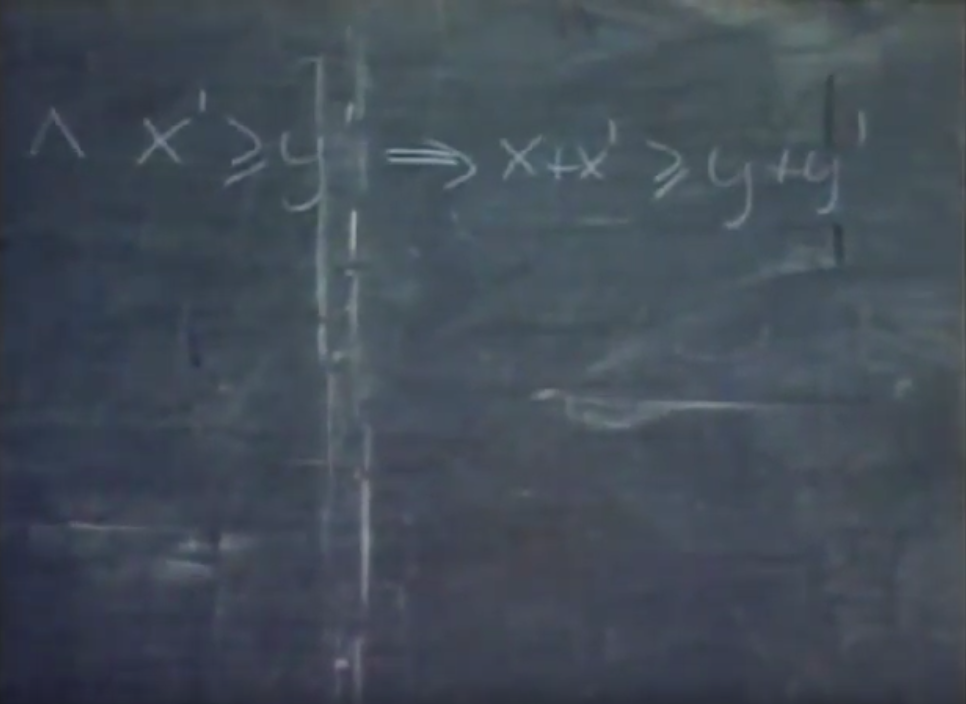 ∧ x' ⩾ y' ⟹ x+x' ⩾ y+y'